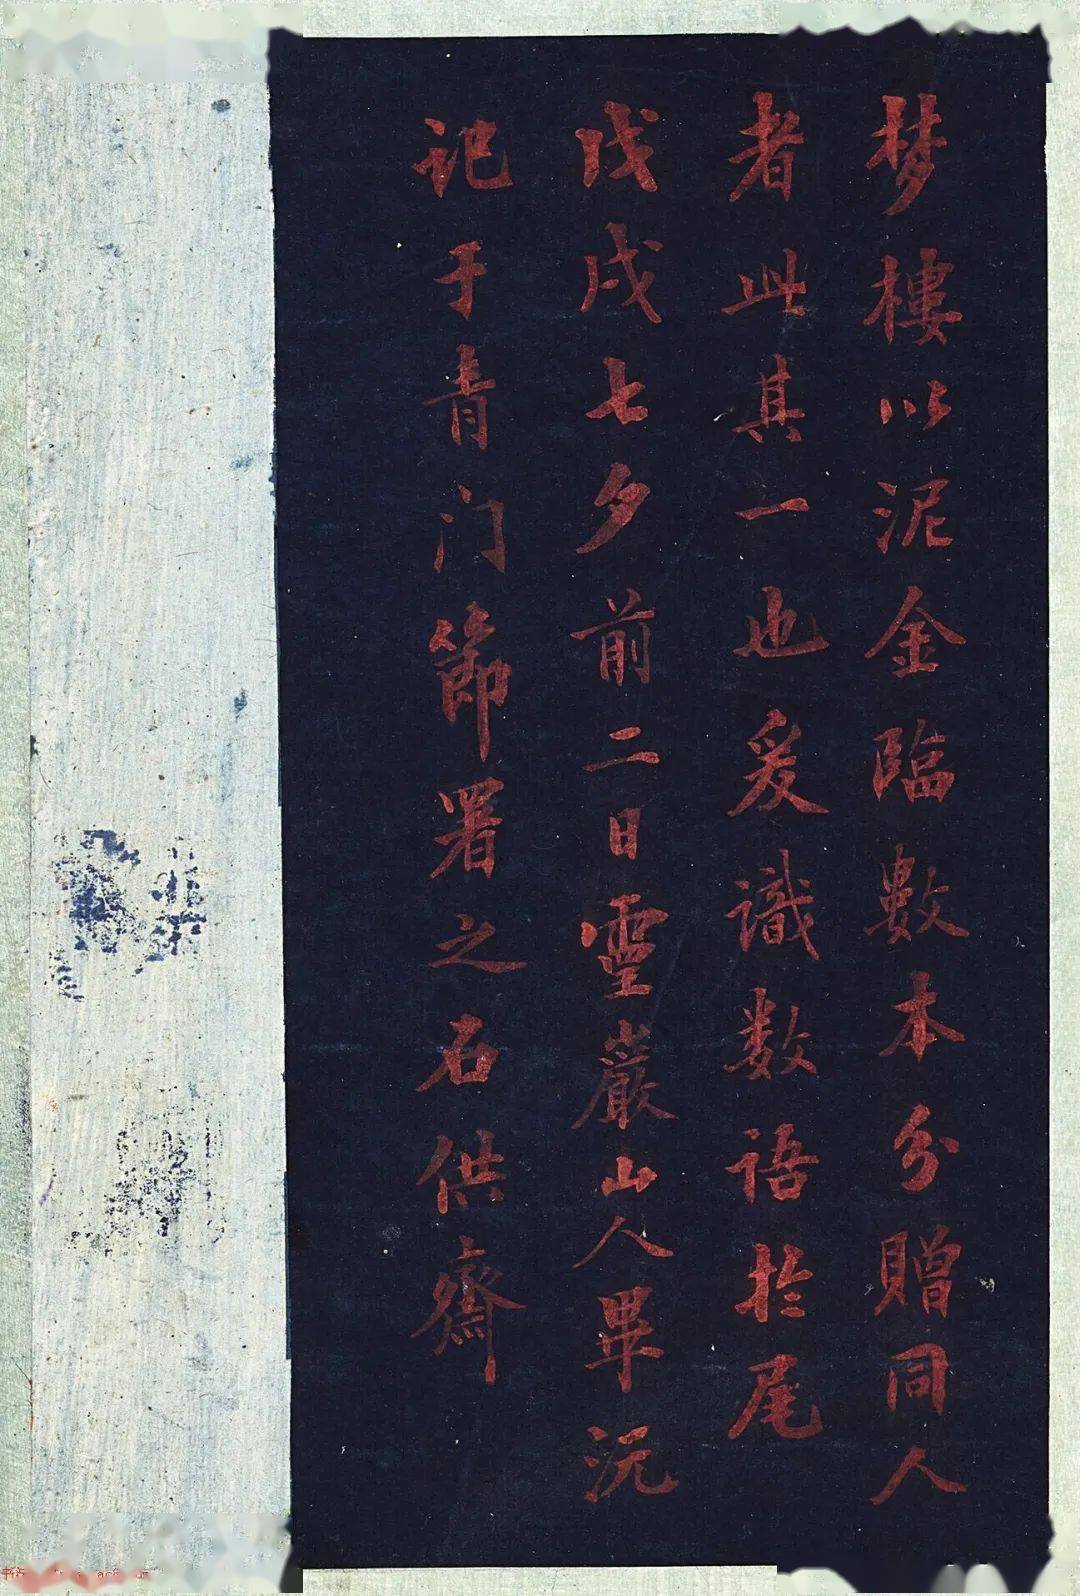 梦樓以泥金臨數本分贈同人
者此其一也爰識数語於尾
戊戌七夕前二日靈巖山人畢沅
記于青门節署之石供齋